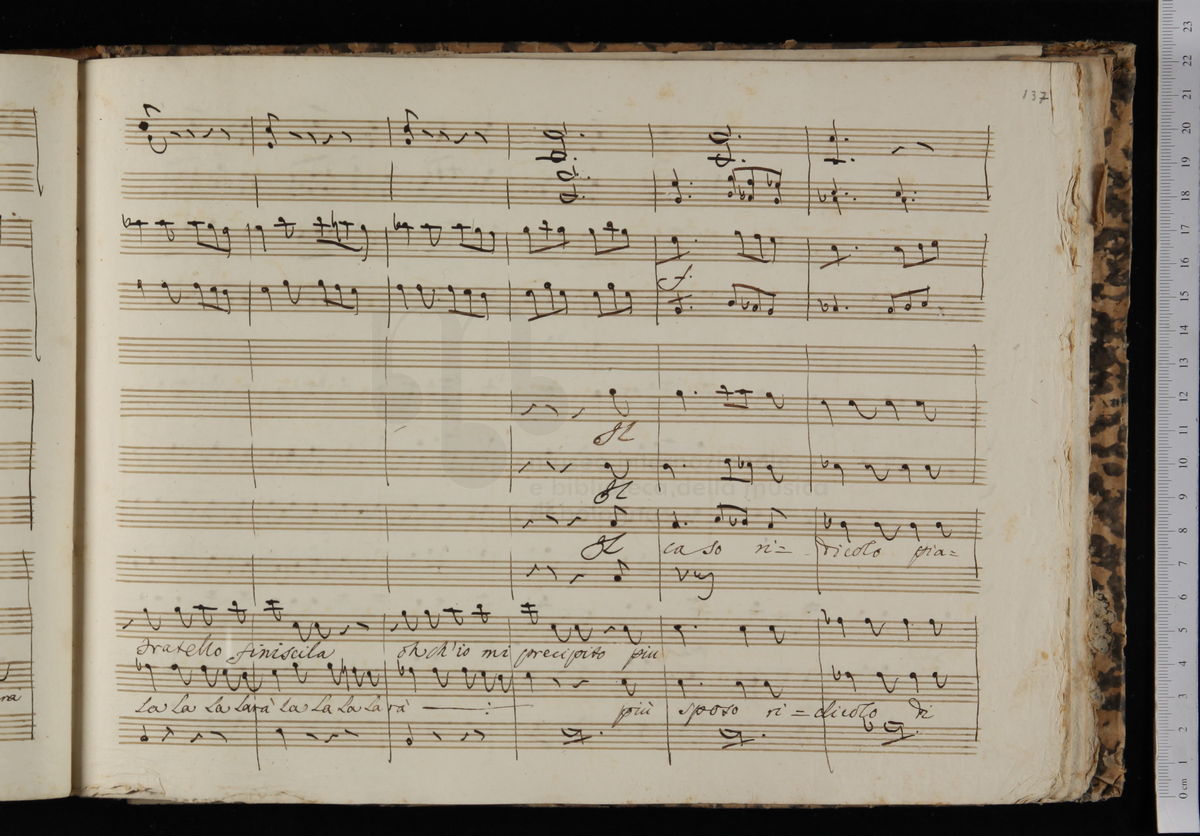 137
Il
Il
Il caso ri= dicolo pia=
fratello finiscila oh ch'io mi precipito piu
ra
la la la larà la la la la rà più sposo ri=dicolo di
e biblioteca della musica
23
22
21
20
19
18
17
16
15
14
13
12
11
10
9
8
7
6
5
4
3
2
1
0 cm